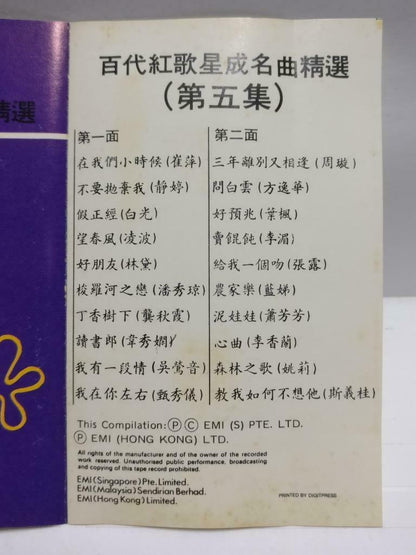 精選
百代紅歌星成名曲精選
(第五集)
第一面
在我們小時候(崔萍)
不要拋棄我(靜婷)
假正經(白光)
望春風(凌波)
好朋友(林黛)
梭羅河之戀(潘秀瓊)
丁香樹下(龔秋霞)
讀書郎(韋秀嫻)
我有一段情(吳鶯音)
我在你左右(甄秀儀)
第二面
三年離別又相逢(周璇)
問白雲(方逸華)
好預兆(葉楓)
賣餛飩(李湄)
給我一個吻(張露)
農家樂(藍娣)
泥娃娃(蕭芳芳)
心曲(李香蘭)
森林之歌(姚莉)
教我如何不想他(斯義桂)
This Compilation: Ⓟ Ⓒ EMI (S) PTE. LTD.
Ⓟ EMI (HONG KONG) LTD.
All rights of the manufacturer and of the owner of the recorded
work reserved. Unauthorised public performance, broadcasting
and copying of this tape record prohibited.
EMI (Singapore) Pte. Limited.
EMI (Malaysia) Sendirian Berhad.
EMI (Hong Kong) Limited.
PRINTED BY DIGITPRESS